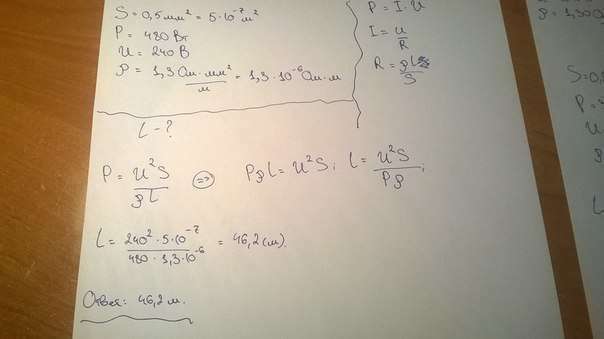 S = 0,5 мм² = 5·10⁻⁷ м²
P = 480 Вт
U = 240 В
ρ = 1,3 Ом·мм²/м = 1,3·10⁻⁶ Ом·м
l - ?
P = I·U
I = U/R
R = ρl/S
P = U²S/ρl ⇒ Pρl = U²S; l = U²S/Pρ;
l = 240²·5·10⁻⁷/480·1,3·10⁻⁶ = 46,2 (м).
Ответ: 46,2 м.
S=0,
P=
U
l